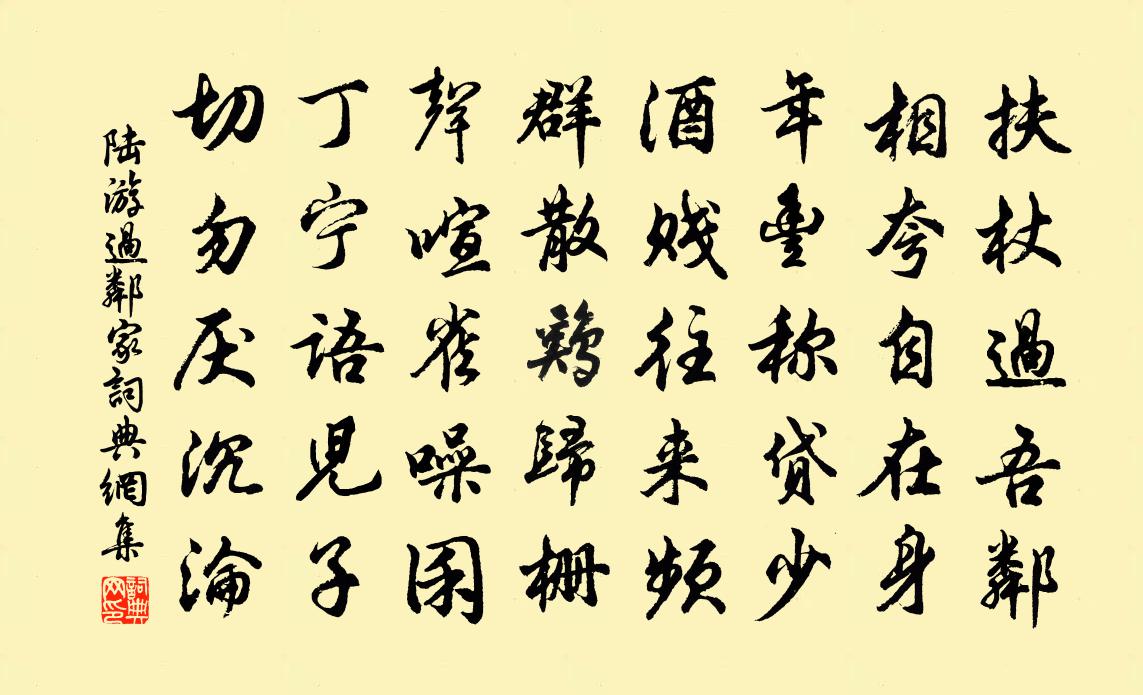 扶杖過吾鄰
相夸自在身
年豐称貸少
酒贱往来頻
群散鷄歸栅
聲喧雀噪囷
丁宁語兒子
切勿厌沉淪
陆游過鄰家詞典網集
詞典网印